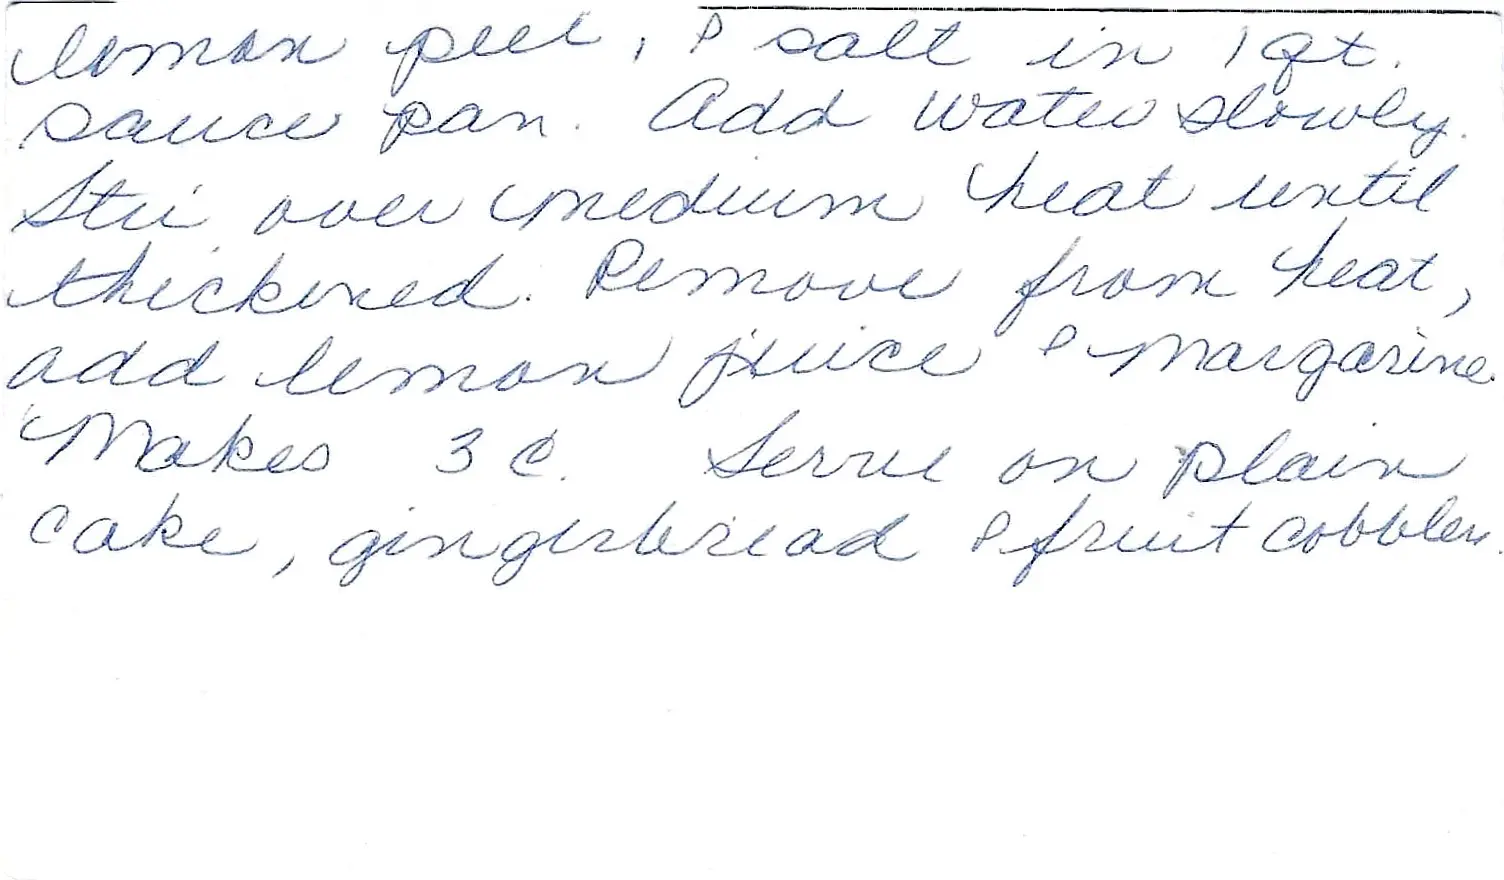 lemon peel, & salt in 1 qt.
sauce pan. Add water slowly.
Stir over medium heat until
thickened. Remove from heat,
add lemon juice & margarine.
Makes 3 c. Serve on plain
cake, gingerbread & fruit cobbler.